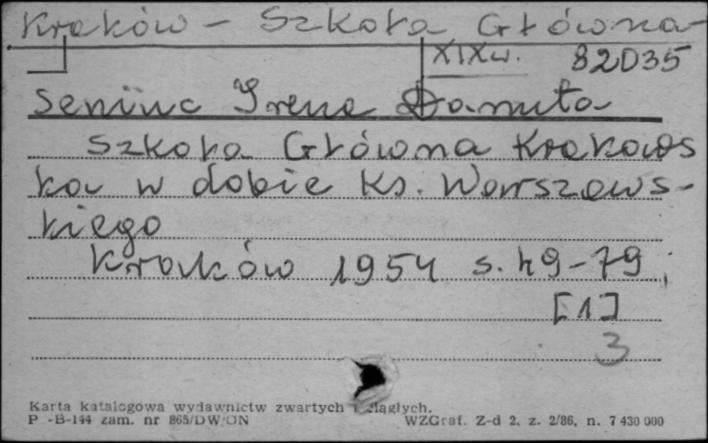 Kraków - Szkoła Główna -
XIXw. 82035
Irena Danuta
Szkoła Główna Krakows
ka w dobie Ks. Warszaws-
kiego
Kraków 1954 s. 49-79,
[1]
3
Karta katalogowa wydawnictw zwartych i ciągłych.
P -B-144 zam. nr 865/DW/ON WZGraf. Z-d 2, z. 2/86, n. 7 430 000